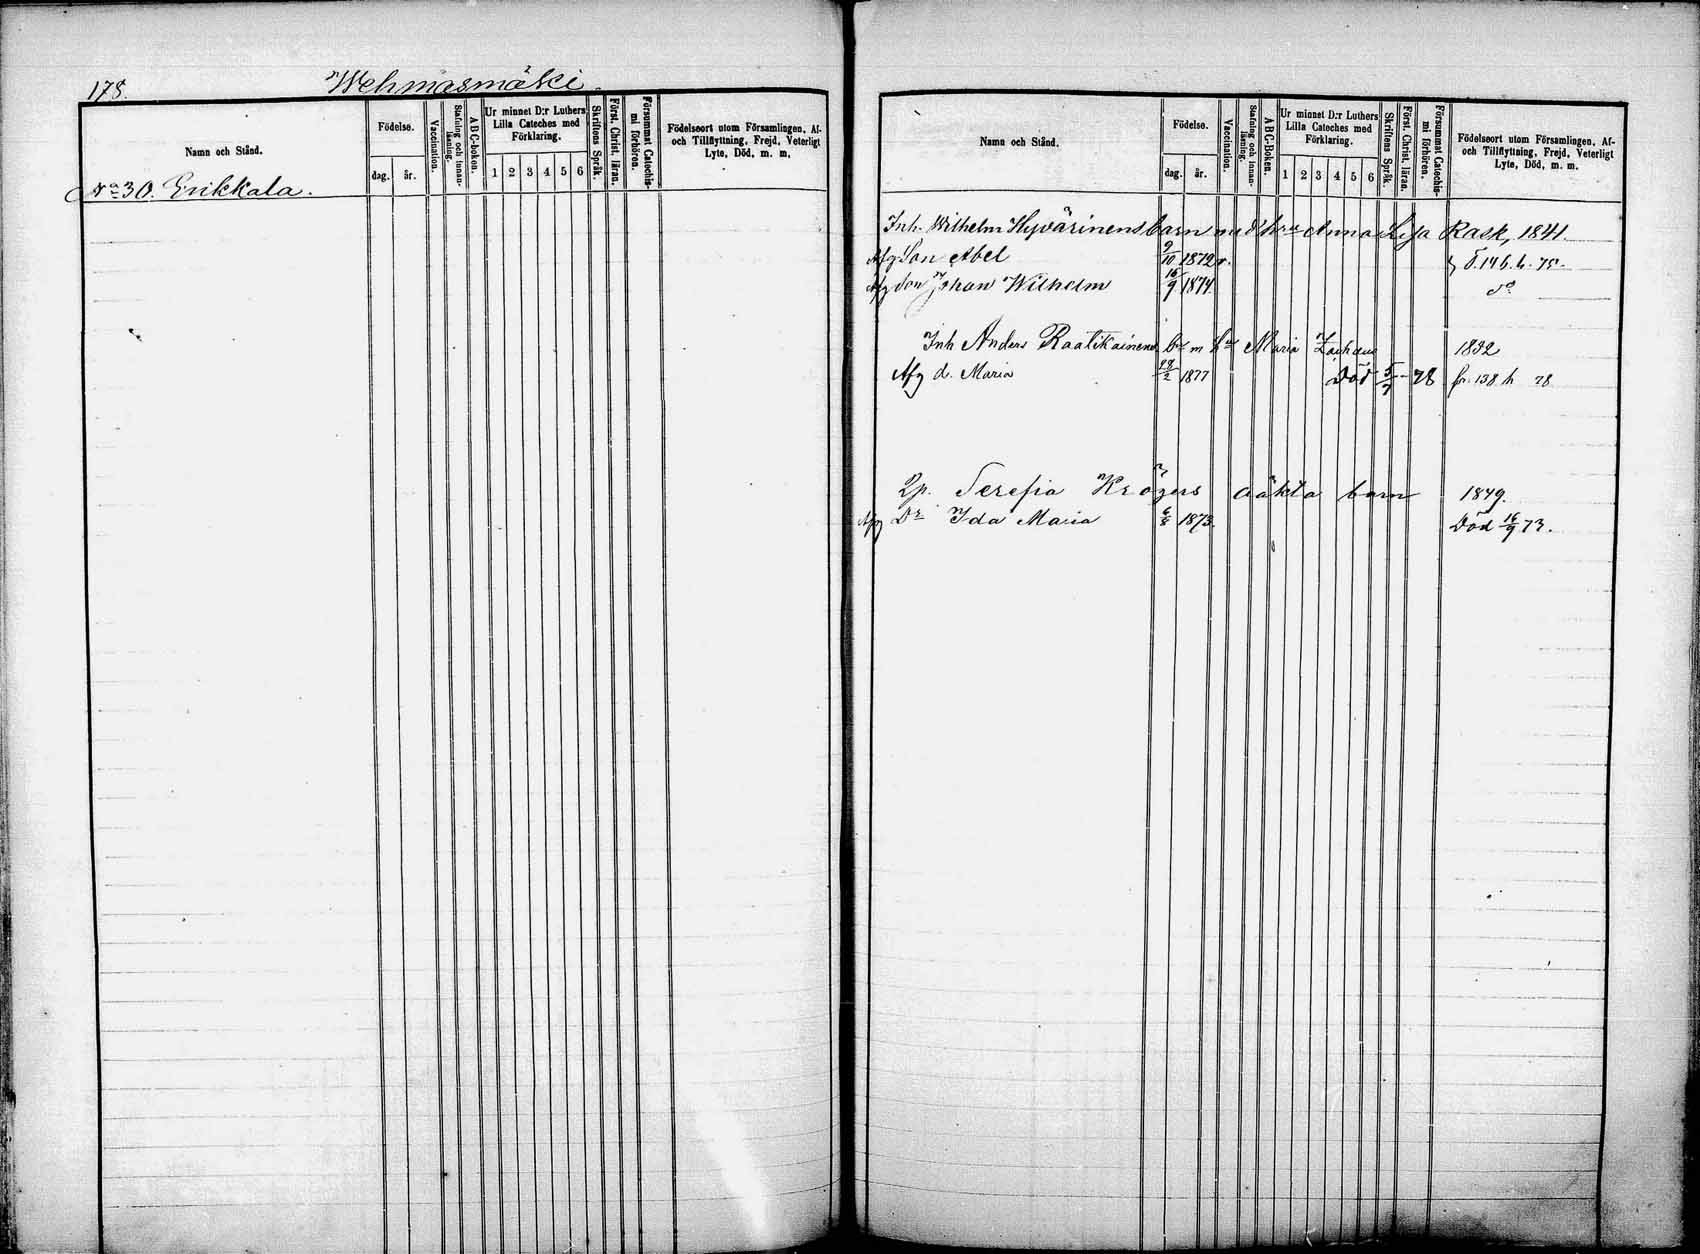 178. Wehmasmäki.
Namn och Stånd.
Födelse.
dag. år.
Vaccination.
Stafning och innanläsning.
ABC-boken.
Ur minnet D:r Luthers Lilla Cateches med Förklaring.
1 2 3 4 5 6
Skriftens Språk.
Först. Christ. läran.
Försummat Catechismi förhören.
Födelseort utom Församlingen, Af- och Tillflyttning, Frejd, Veterligt Lyte, Död, m. m.
No 30. Erikkala.
Namn och Stånd.
Födelse.
dag. år.
Vaccination.
Stafning och innanläsning.
ABC-Boken.
Ur minnet D:r Luthers Lilla Cateches med Förklaring.
1 2 3 4 5 6
Skriftens Språk.
Först. Christ. läran.
Försummat Catechismi förhören.
Födelseort utom Församlingen, Af- och Tillflyttning, Frejd, Veterligt Lyte, Död, m. m.
Inh. Wilhelm Hyvärinens barn med hru Anna Lisa Rask, 1841.
Afg Son Abel 9/10 1872 v. 146. h. 75.
Afg Son Johan Wilhelm 16/9 1874. do
Inh Anders Raatikainens bn m hu Maria 1832
Afg d. Maria 28/2 1877 Död 5/7 78 fr. 138 h 78
Qp. Serefia Krögers oäkta barn 1849.
Afg Dr Ida Maria 6/8 1873. Död 16/9 73.